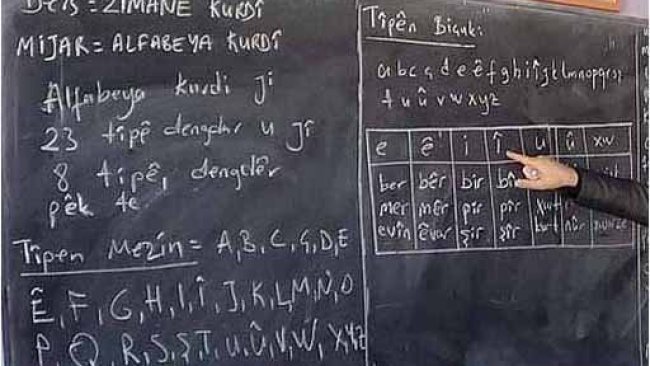 Ders = ZIMANÊ KURDÎ
MIJAR = ALFABEYA KURDÎ
Alfabeya kurdi ji
23 tipê dengdar u jî
8 tipê, dengdêr
pêk te
Tîpên Mezin = A, B, C, Ç, D, E
Ê, F, G, H, I, Î, J, K, L, M, N, O
P, Q, R, S, Ş, T, U, Û, V, W, X, Y, Z
Tîpên Biçuk:
a b c ç d e ê f g h i î j k l m n o p q r s ş
t u û v w x y z
e ê i î u û xw
ber bêr bir bîr
mer mêr pir pîr
evîn êvar şir şîr kurt nûr